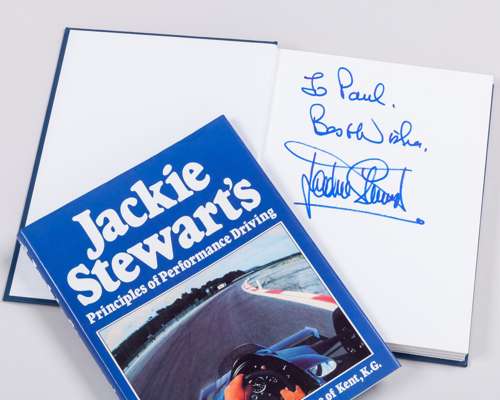 To Paul.
Best Wishes,
Jackie Stewart.
Jackie
Stewart's
Principles of Performance Driving
of Kent, K.G.